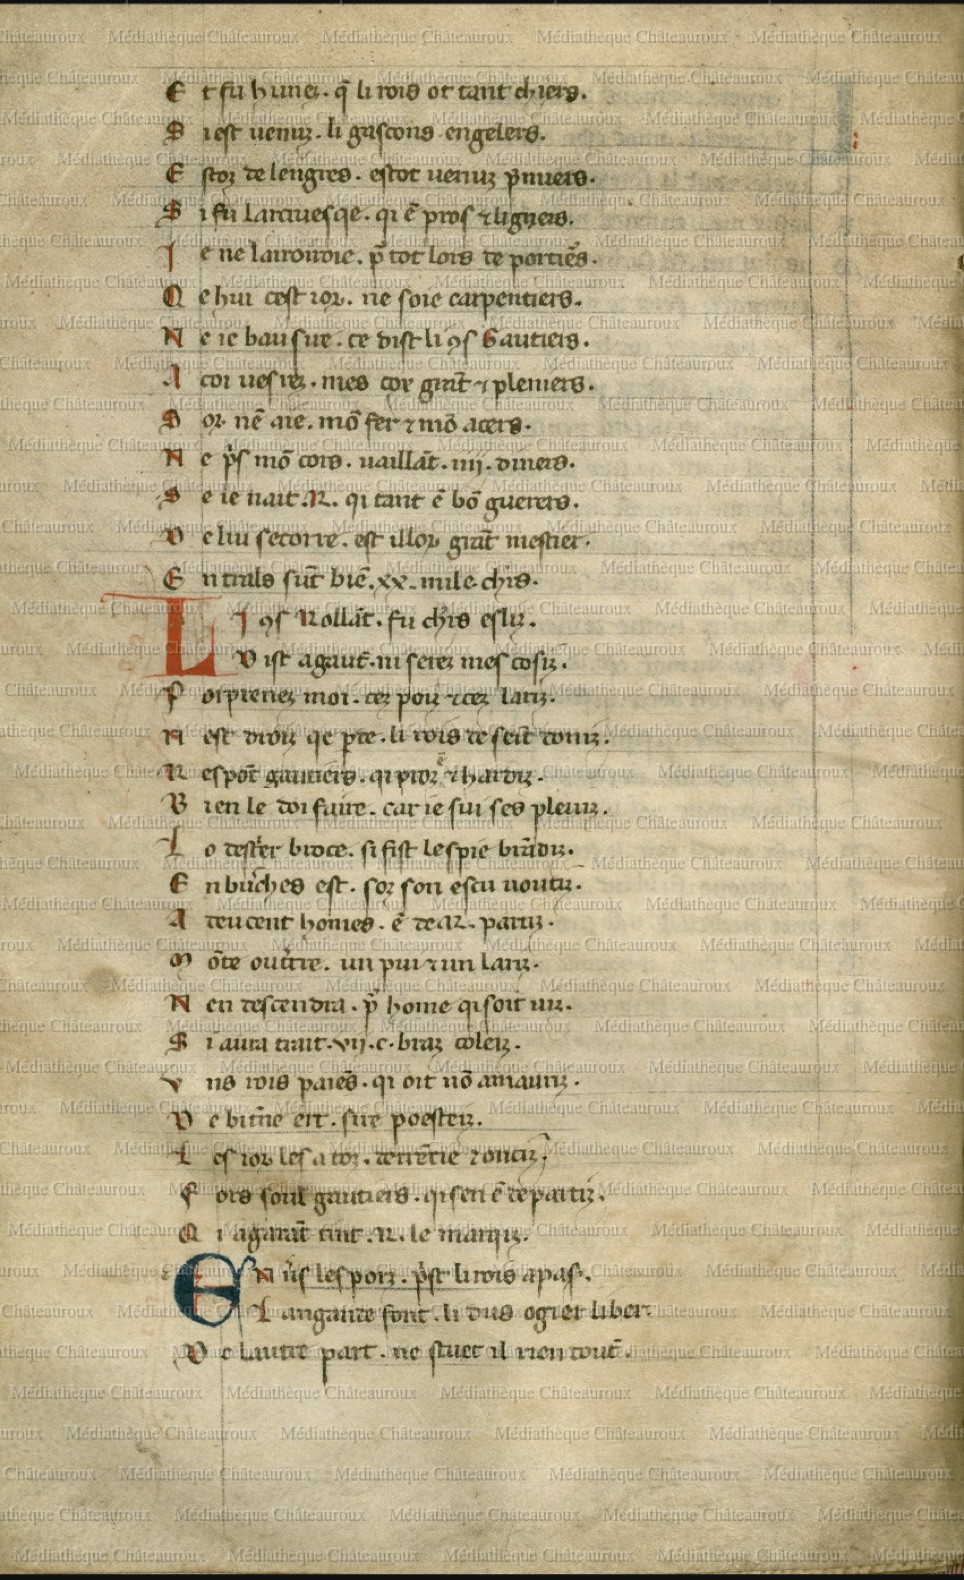 E t fu hunez . q̃ li rois ot tant chiers .
S i est uenuz . li gascons engelers .
E storz de lengres . estot uenuz p̃miers .
S i fu larciuesqe . qi ẽ pros ⁊ ligiers .
J e ne lairoie . p̃ tot lors de portiẽs .
Q e hui cest ior . ne soie carpentiers .
N e ie bausue . ce dist li ꝯs Gautiers .
A coi uesrez . mes cor grãt ⁊ pleniers .
S or nẽ aie . mõ fer ⁊ mõ acers .
N e p̃s mõ cors . uaillãt . iiij . diners .
S e ie nait . R . qi tant ẽ bõ guerers .
D e lui secorre . est illor grãt mestier .
E n trals sũt biẽ . xx . mile . chrs .
L I ꝯs Rollãt . fu chrs esliz .
D ist a gaut̃ . ni serez mes cosiz .
P orprenez moi . cez porz ⁊ cez lariz .
N est droiz qe pde . li rois de seit toniz .
R espõt gautiers . qi proz ẽ ⁊ hardiz .
B ien le doi faire . car ie sui ses pleuiz .
L o destrer broce . si fist lespie brãdiz .
E nbuches est . soz son escu uoutiz .
A deucent homes . ẽ de . R . partiz .
M õte oultre . un pui ⁊ un lariz .
N en descendra . p̃ home qi soit uiz .
S i aura trait . vij . c . braz coleiz .
V ns rois paiẽs . qi oit nõ amauriz .
D e bitñe ert . sue poesteiz .
L es ior les a toz . detrẽcie ⁊ onciz .
F ors soul gautiers . qi sen ẽ departiz .
Q i a garãt tint . R . le marqiz .
E N ũs les porz . p̃st li rois a pas .
L angarde font . li dus ogier li ber .
D e lautre part . ne stuet il rien tout̃ .